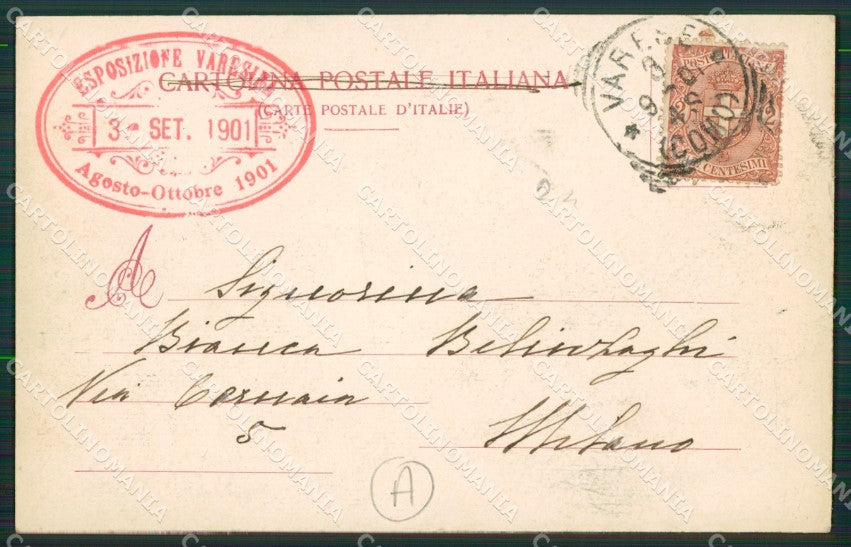 ESPOSIZIONE VARESINA
3 - SET. 1901
Agosto-Ottobre 1901
CARTOLINA POSTALE ITALIANA
(CARTE POSTALE D'ITALIE)
VARESE
(COMO)
POSTE
CENTESIMI
A Signorina
Bianca Belinzaghi
Via Cernaia
5
Milano
A
CARTOLINOMANIA